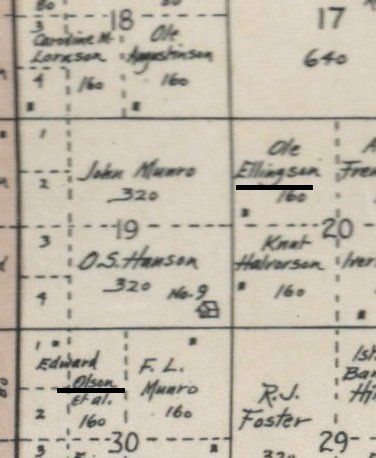 80
80
18
17
3
Caroline M.
Lornson
Ole
Augustinson
640
4
160
160
1
Ole
2
John Munro
Ellingson
320
160
19
20
3
Knut
O.S. Hanson
Halvorson
4
320
No. 9
160
1
Edward
F. L.
Olson
Munro
et al.
R.J.
2
160
160
Foster
30
29
3
320